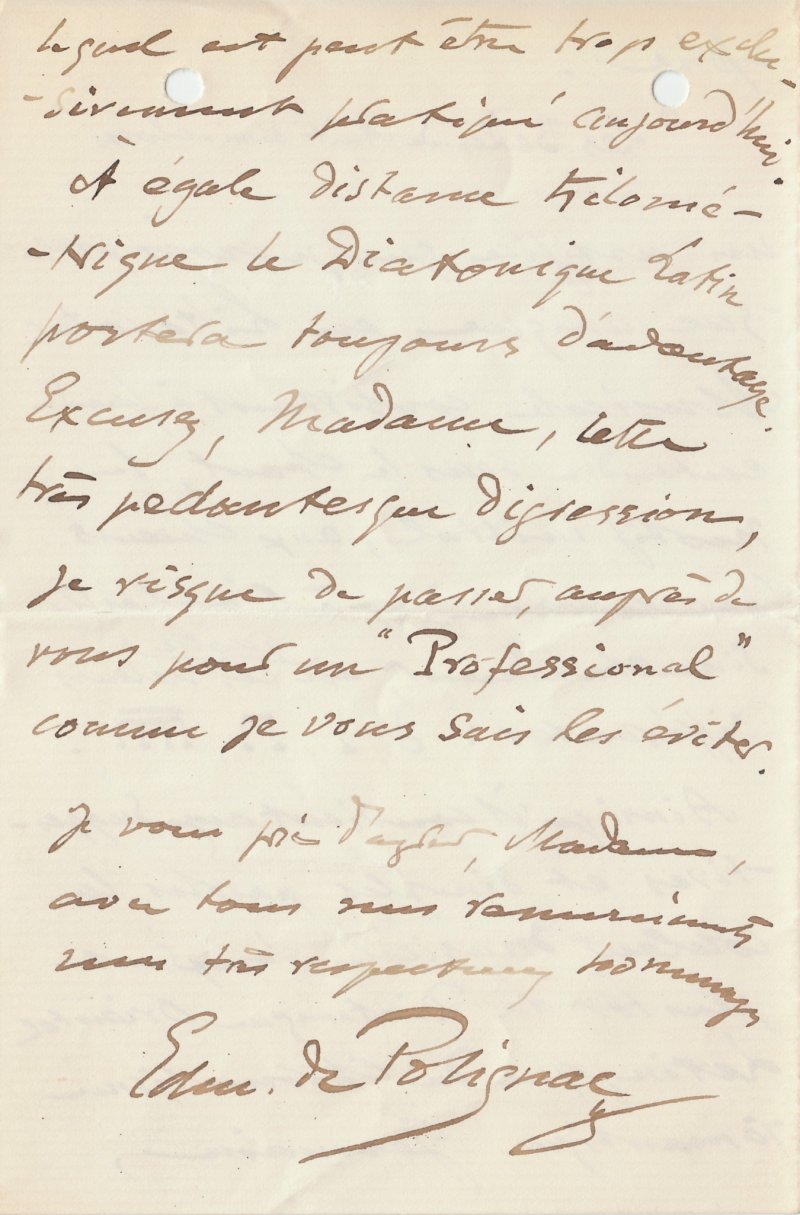 lequel est peut être trop exclu-
-sivement pratiqué aujourd'hui.
A égale distance kilomé-
-trique le Diatonique Latin
portera toujours d'avantage.
Excusez, Madame, cette
très pedantesque digression,
je risque de passer, auprès de
vous pour un "Professional"
comme je vous sais les éviter.
Je vous prie d'agréer, Madame,
avec tous mes remerciments
mes très respectueux hommages
Edm. de Polignac